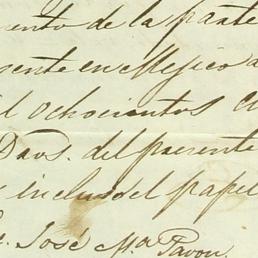 ento de la parte
sente en Mejico a
il ochocientos
Daus. del presente
incluso el papel
José Ma. Pavon.